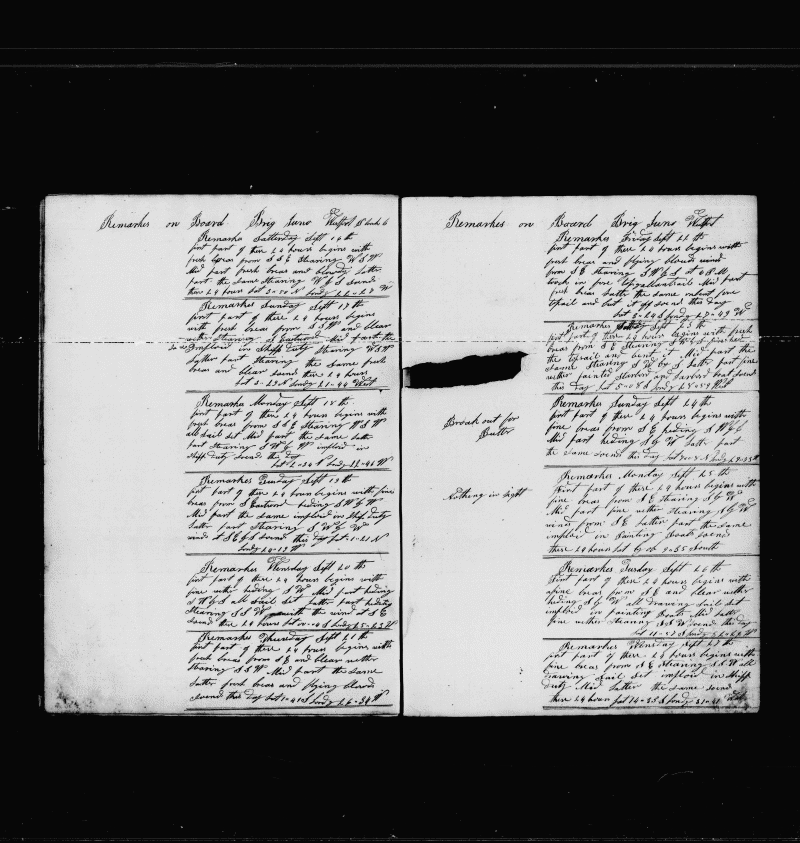 Remarks on Board Brig Juno Westport
Remarks Satterday Sept 16th
first part of these 24 hours begins with
fresh breas from S S E Stearing W S W
Mid part fresh breas and Cloudy Latter
part the same Stearing W & S soend
these 24 hours Lat 3-20 N Longy 22-27 W
Remarks Sunday Sept 17th
first part of these 24 hours begins
with fresh breas from S S W and Clear
wether Stearing Mid part the
Imploied in Shipp duty Stearing W S W
Latter part Stearing the same fresh
breas and Clear soend these 24 hours
Lat 2-29 N Longy 21-44 West
Remarks Monday Sept 18th
first part of these 24 hours begins with
fresh breas from S S E Stearing W S W
all sail set Mid part the same Latter
part Stearing S W & W imploied in
Shipp duty soend this day
Lat 2-34 N Longy 22-46 W
Remarks Tuesday Sept 19th
first part of these 24 hours begins with fine
breas from S Eastward heding S W & W
Mid part the same imploied in Ship duty
Latter part Stearing S W & W
wind at S E & S soend this day Lat 1-21 N
Longy 24-17 W
Remarks Wensday Sept 20th
first part of these 24 hours begins with
fine wether heding S W Mid part heding
S W & S all sail set Latter part heding
Stearing S S W with the wind at S E
soend these 24 hours Lat 00-04 S Longy 25-23 W
Remarks Thursday Sept 21th
first part of these 24 hours begins with
fresh breas from S E and Clear wether
Stearing S S W Mid part the same
Latter fresh breas and flying Clouds
soend this day Lat 1-41 S Longy 26-34 W
Remarks on Board Brig Juno Westport
Remarks Friday Sept 22th
first part of these 24 hours begins with
fresh breas and flying Clouds wind
from S E Stearing S W & S at 4 P M
brock in fore Topgallantsail Mid part
fresh breas Latter the same unbent fore
topsail and bent it off soend this day
Lat 3-24 S Longy 27-49 W
Remarks Sept 23th
first part of these 24 hours begins with fresh
breas from S E Stearing S W finished
the topsail and bent it Mid part the
same Stearing S W by S Latter part fine
wether painted Starbord and Larbord boat soend
this day Lat 5-08 S Longy 28-59 West
Remarks Sunday Sept 24th
first part of these 24 hours begins with
fine breas from S E heding S W & S
Broak out for
Butter
Mid part heding S & W Latter part
the same soend this day
Remarks Monday Sept 25th
Nothing in Sight
first part of these 24 hours begins with
fine breas from S E Stearing S & W
Mid part fine wether Stearing S & W
wind from S E Latter part the same
imploied in Painting boats soend
these 24 hours
Remarks Tuesday Sept 26th
first part of these 24 hours begins with
afine breas from S E and Clear wether
heding S & W all Drawing Sail set
imploied in painting Boats Mid Latter
fine wether Stearing S S W soend this day
Remarks Wensday Sept 27th
first part of these 24 hours begins with
fine breas from S E Stearing S S W all
drawing Sail set imploied in Shipp
duty Mid Latter the same soend
these 24 hours Lat 14-35 S Longy 31-41 West